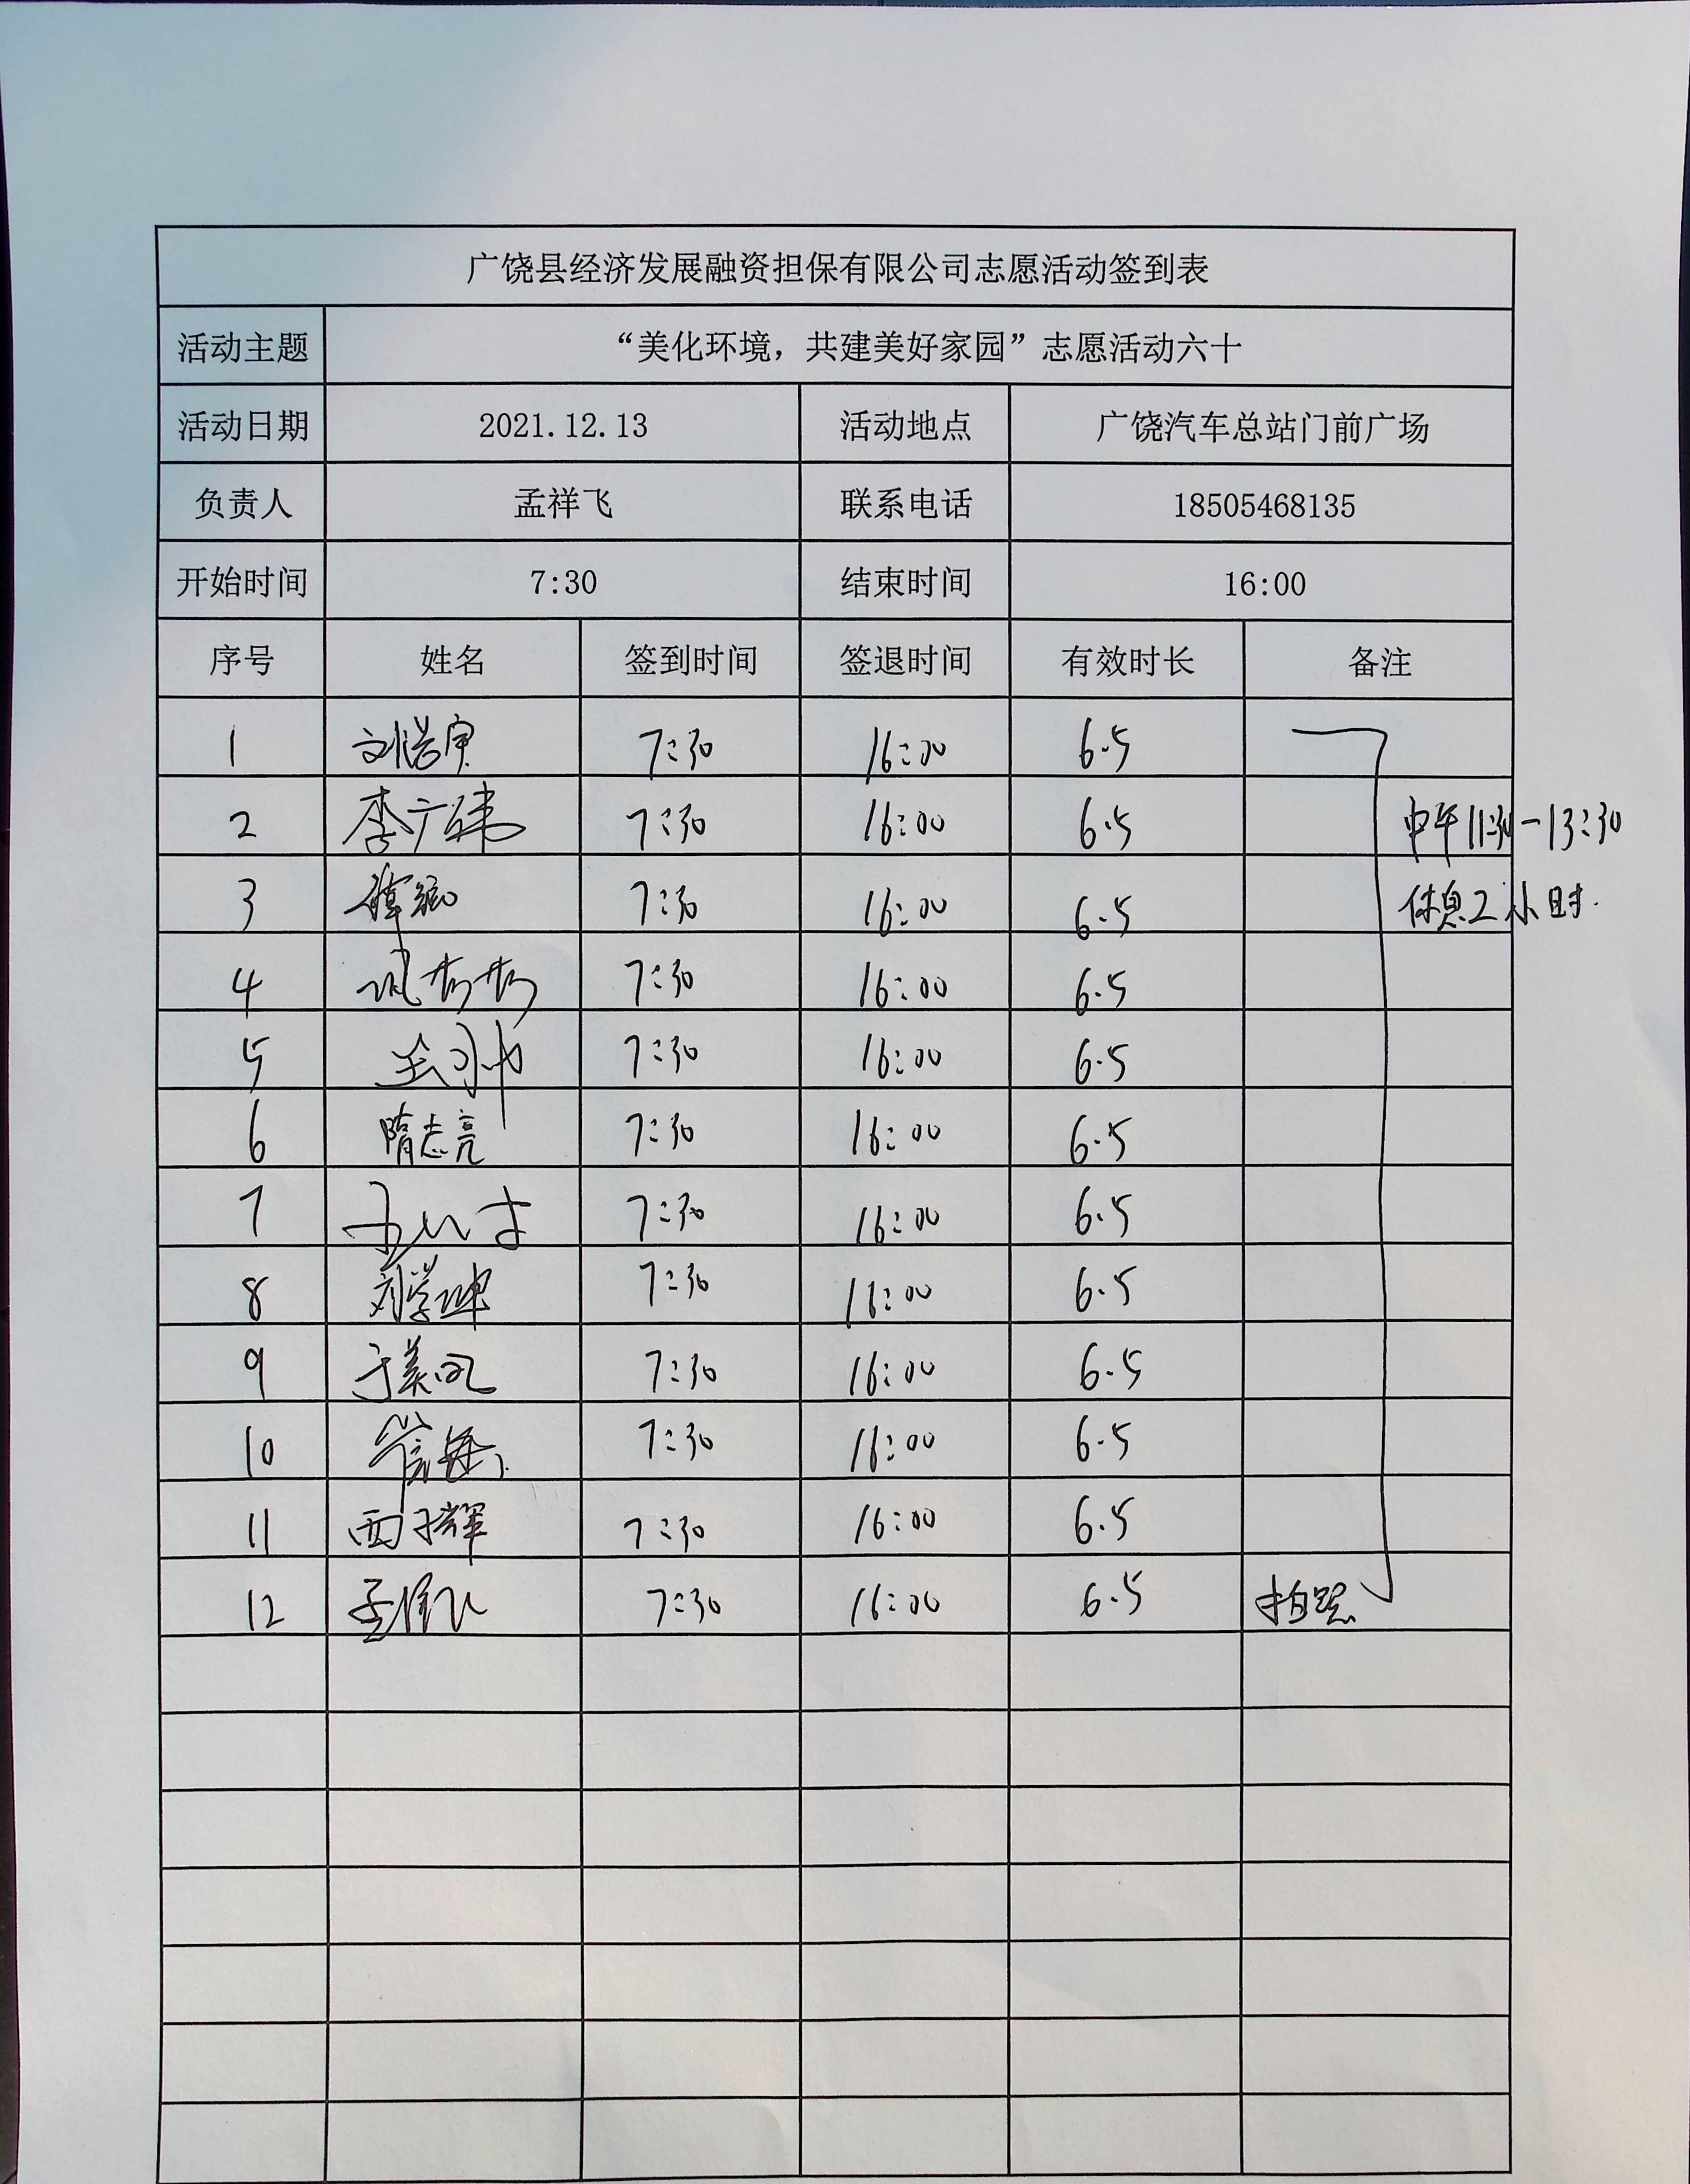 广饶县经济发展融资担保有限公司志愿活动签到表
活动主题 “美化环境，共建美好家园”志愿活动六十
活动日期 2021.12.13 活动地点 广饶汽车总站门前广场
负责人 孟祥飞 联系电话 18505468135
开始时间 7:30 结束时间 16:00
序号 姓名 签到时间 签退时间 有效时长 备注
1 7:30 16:00 6.5
2 李广玮 7:30 16:00 6.5 中午11:30-13:30
3 7:30 16:00 6.5 休息2小时.
4 7:30 16:00 6.5
5 7:30 16:00 6.5
6 隋志亮 7:30 16:00 6.5
7 7:30 16:00 6.5
8 刘学坤 7:30 16:00 6.5
9 于美凤 7:30 16:00 6.5
10 7:30 16:00 6.5
11 西子辉 7:30 16:00 6.5
12 7:30 16:00 6.5 拍照